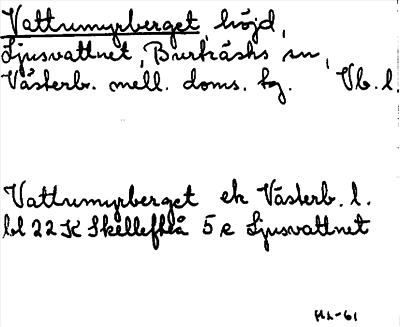 Vattrumyrberget, höjd,
Ljusvattnet, Burträsks sn,
Västerb. mell. doms. tg. Vb. l.
Vattrumyrberget ek Västerb. l.
bl 22 K Skellefteå 5 e Ljusvattnet
HL-61